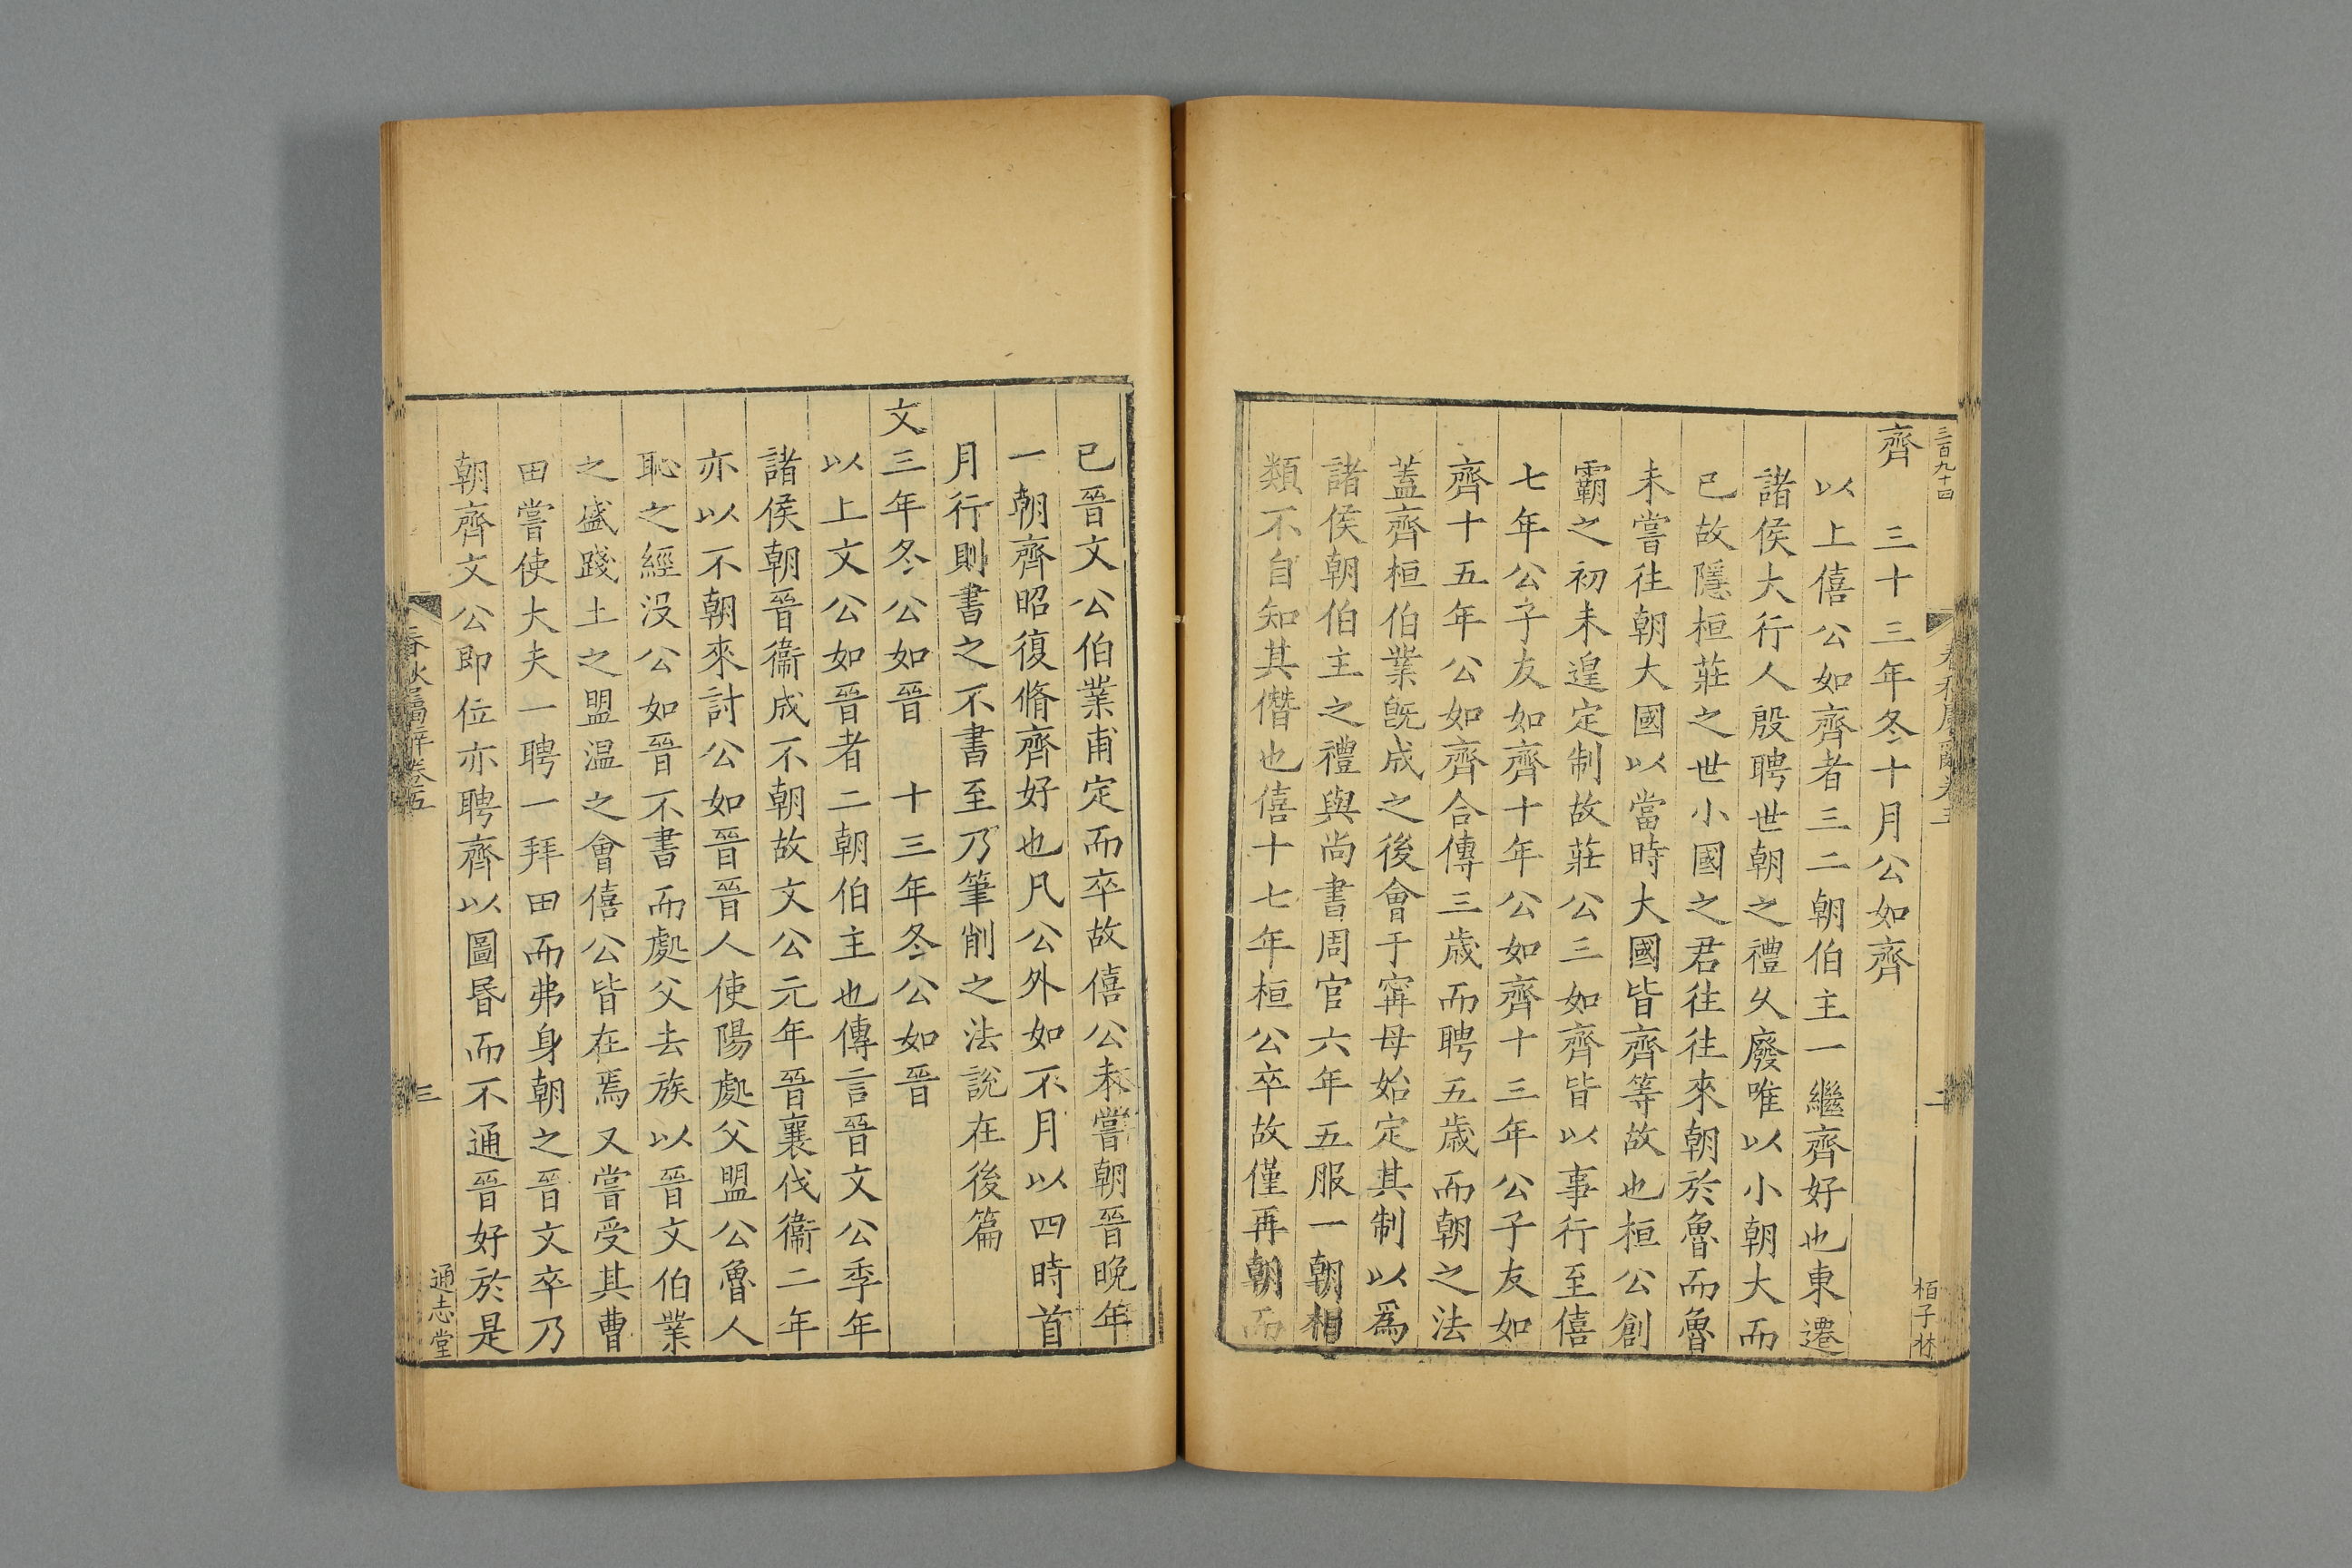 三百九十四
齊　三十三年冬十月公如齊
以上僖公如齊者三二朝伯主一繼齊好也東遷
諸侯大行人殷聘世朝之禮久廢唯以小朝大而
已故隱桓莊之世小國之君往往來朝於魯而魯
未嘗往朝大國以當時大國皆齊等故也桓公創
霸之初未遑定制故莊公三如齊皆以事行至僖
七年公子友如齊十年公如齊十三年公子友如
齊十五年公如齊合傳三歲而聘五歲而朝之法
蓋齊桓伯業旣成之後會于甯母始定其制以爲
諸侯朝伯主之禮與尚書周官六年五服一朝相
類不自知其僭也僖十七年桓公卒故僅再朝而
二
栢子林
已晉文公伯業甫定而卒故僖公未嘗朝晉晚年
一朝齊昭復脩齊好也凡公外如不月以四時首
月行則書之不書至乃筆削之法說在後篇
文三年冬公如晉　十三年冬公如晉
以上文公如晉者二朝伯主也傳言晉文公季年
諸侯朝晉衞成不朝故文公元年晉襄伐衞二年
亦以不朝來討公如晉晉人使陽處父盟公魯人
恥之經沒公如晉不書而處父去族以晉文伯業
之盛踐土之盟温之會僖公皆在焉又嘗受其曹
田嘗使大夫一聘一拜田而弗身朝之晉文卒乃
朝齊文公即位亦聘齊以圖昏而不通晉好於是
春秋屬辭卷五
三
通志堂